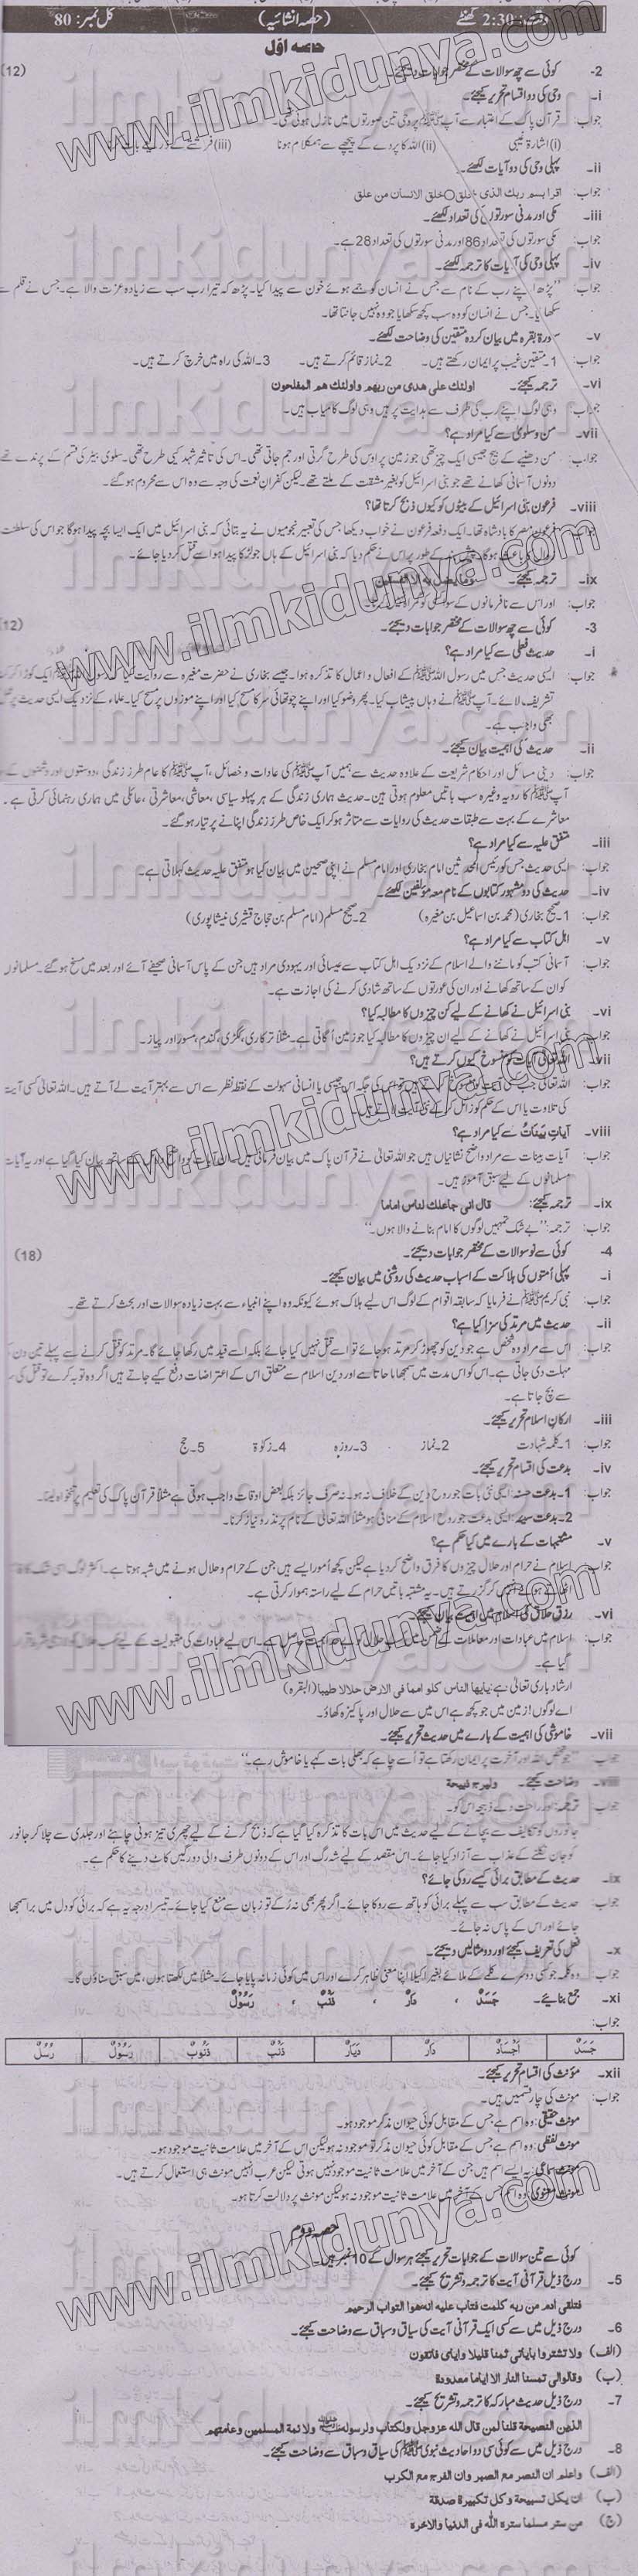 وقت: 2:30 گھنٹے (حصہ انشائیہ) کل نمبر: 80
حصہ اوّل
2- کوئی سے چھ سوالات کے مختصر جوابات دیجئے۔ (12)
i- وحی کی دو اقسام تحریر کیجئے۔
جواب: قرآن پاک کے اعتبار سے آپﷺ پر وحی تین صورتوں میں نازل ہوئی تھی۔
(i) اشارۂ غیبی (ii) اللہ کا پردے کے پیچھے سے ہمکلام ہونا (iii) فرشتے کے ذریعے
ii- پہلی وحی کی دو آیات لکھئے۔
جواب: اقرا بسم ربك الذی خلق○خلق الانسان من علق
iii- مکی اور مدنی سورتوں کی تعداد لکھئے۔
جواب: مکی سورتوں کی تعداد 86 اور مدنی سورتوں کی تعداد 28 ہے۔
iv- پہلی وحی کی آیات کا ترجمہ لکھئے۔
جواب: "پڑھ اپنے رب کے نام سے جس نے انسان کو جمے ہوئے خون سے پیدا کیا۔ پڑھ کہ تیرا رب سب سے زیادہ عزت والا ہے۔ جس نے قلم سے
سکھایا۔ جس نے انسان کو وہ سب کچھ سکھایا جو وہ نہیں جانتا تھا۔
v- سورۃ بقرہ میں بیان کردہ متقین کی وضاحت لکھئے۔
جواب: 1- متقین غیب پر ایمان رکھتے ہیں۔ 2- نماز قائم کرتے ہیں۔ 3- اللہ کی راہ میں خرچ کرتے ہیں۔
vi- ترجمہ کیجئے۔ اولئك على هدى من ربهم واولئك هم المفلحون
جواب: وہی لوگ اپنے رب کی طرف سے ہدایت پر ہیں وہی لوگ کامیاب ہیں۔
vii- من وسلویٰ سے کیا مراد ہے؟
جواب: من دھنیے کے بیج جیسی ایک چیز تھی جو زمین پر اوس کی طرح گرتی اور جم جاتی تھی۔ اس کی تاثیر شہد کی طرح تھی۔ سلویٰ بٹیر کی قسم کے پرندے تھے
دونوں آسمانی کھانے تھے جو بنی اسرائیل کو بغیر مشقت کے ملتے تھے۔ لیکن کفران نعمت کی وجہ سے وہ اس سے محروم ہو گئے۔
viii- فرعون بنی اسرائیل کے بیٹوں کو کیوں ذبح کرتا تھا؟
جواب: فرعون مصر کا بادشاہ تھا۔ ایک دفعہ فرعون نے خواب دیکھا جس کی تعبیر نجومیوں نے یہ بتائی کہ بنی اسرائیل میں ایک ایسا بچہ پیدا ہوگا جو اس کی سلطنت
کے طور پر اس نے حکم دیا کہ بنی اسرائیل کے ہاں جو لڑکا پیدا ہو اسے قتل کر دیا جائے۔
ix- ترجمہ کیجئے۔ وما يضل به الا الفسقين
جواب: اور اس سے نافرمانوں کے سوا کسی کو گمراہ نہیں کرتا۔
3- کوئی سے چھ سوالات کے مختصر جوابات دیجئے۔ (12)
i- حدیث فعلی سے کیا مراد ہے؟
جواب: ایسی حدیث جس میں رسول اللہﷺ کے افعال و اعمال کا تذکرہ ہوا۔ جیسے بخاری نے حضرت مغیرہ سے روایت کیا
تشریف لائے۔ آپﷺ نے وہاں پیشاب کیا۔ پھر وضو کیا اور اپنے چوتھائی سر کا مسح کیا اور اپنے موزوں پر مسح کیا۔ علماء کے نزدیک ایسی حدیث پر عمل
بھی واجب ہے۔
ii- حدیث کی اہمیت بیان کیجئے۔
جواب: دینی مسائل اور احکام شریعت کے علاوہ حدیث سے ہمیں آپﷺ کی عادات و خصائل، آپﷺ کا عام طرز زندگی، دوستوں اور دشمنوں کے
آپﷺ کا رویہ وغیرہ سب باتیں معلوم ہوتی ہیں۔ حدیث ہماری زندگی کے ہر پہلو سیاسی، معاشی، معاشرتی، عائلی میں ہماری رہنمائی کرتی ہے۔
معاشرے کے بہت سے طبقات حدیث کی روایات سے متاثر ہو کر ایک خاص طرز زندگی اپنانے پر تیار ہو گئے۔
iii- متفق علیہ سے کیا مراد ہے؟
جواب: ایسی حدیث جس کو رئیس المحدثین امام بخاری اور امام مسلم نے اپنی صحیحین میں بیان کیا ہو متفق علیہ حدیث کہلاتی ہے۔
iv- حدیث کی دو مشہور کتابوں کے نام معہ مؤلفین لکھئے۔
جواب: 1- صحیح بخاری (محمد بن اسماعیل بن مغیرہ) 2- صحیح مسلم (امام مسلم بن حجاج قشیری نیشاپوری)
v- اہل کتاب سے کیا مراد ہے؟
جواب: آسمانی کتب کو ماننے والے اسلام کے نزدیک اہل کتاب سے عیسائی اور یہودی مراد ہیں جن کے پاس آسمانی صحیفے آئے اور بعد میں مسخ ہو گئے۔ مسلمانوں
کو ان کے ساتھ کھانے اور ان کی عورتوں کے ساتھ شادی کرنے کی اجازت ہے۔
vi- بنی اسرائیل نے کھانے کے لیے کن چیزوں کا مطالبہ کیا؟
جواب: بنی اسرائیل نے کھانے کے لیے ان چیزوں کا مطالبہ کیا جو زمین اُگاتی ہے۔ مثلاً ترکاری، ککڑی، گندم، مسور اور پیاز۔
vii- اللہ تعالیٰ آیات کو منسوخ کیوں کرتے ہیں؟
جواب: اللہ تعالیٰ جب کسی آیت اس کی جگہ اس جیسی یا انسانی سہولت کے نقطہ نظر سے اس سے بہتر آیت لے آتے ہیں۔ اللہ تعالیٰ کسی آیت
کی تلاوت یا اس کے حکم کو زائل کر کے نئی
viii- آیات بینٰت سے کیا مراد ہے؟
جواب: آیات بینات سے مراد واضح نشانیاں ہیں جو اللہ تعالیٰ نے قرآن پاک میں بیان فرمائی ہیں۔ ان آیات کو بیان کیا گیا ہے اور یہ آیات
مسلمانوں کے لیے سبق آموز ہیں۔
ix- ترجمہ کیجئے: قال انی جاعلك لناس اماما
جواب: ترجمہ: "بے شک تمہیں لوگوں کا امام بنانے والا ہوں۔"
4- کوئی سے نو سوالات کے مختصر جوابات دیجئے۔ (18)
i- پہلی اُمتوں کی ہلاکت کے اسباب حدیث کی روشنی میں بیان کیجئے۔
جواب: نبی کریمﷺ نے فرمایا کہ سابقہ اقوام کے لوگ اس لیے ہلاک ہوئے کیونکہ وہ اپنے انبیاء سے بہت زیادہ سوالات اور بحث کرتے تھے۔
ii- حدیث میں مرتد کی سزا کیا ہے؟
جواب: اس سے مراد وہ شخص ہے جو دین کو چھوڑ کر مرتد ہو جائے تو اسے قتل نہیں کیا جائے بلکہ اسے قید میں رکھا جائے گا۔ مرتد کو قتل کرنے سے پہلے تین دن کی
مہلت دی جاتی ہے۔ اس کو اس مدت میں سمجھایا جاتا ہے اور دین اسلام سے متعلق اس کے اعتراضات دفع کیے جاتے ہیں اگر وہ توبہ کرے تو قتل کی
سے بچ جاتا ہے۔
iii- ارکان اسلام تحریر کیجئے۔
جواب: 1- کلمہ شہادت 2- نماز 3- روزہ 4- زکوٰۃ 5- حج
iv- بدعت کی اقسام تحریر کیجئے۔
جواب: 1- بدعت حسنہ: ایسی نئی بات جو روح دین کے خلاف نہ ہو۔ نہ صرف جائز بلکہ بعض اوقات واجب ہوتی ہے مثلاً قرآن پاک کی تعلیم پر تنخواہ لینا۔
2- بدعت سیہ: ایسی بدعت جو روح اسلام کے منافی ہو مثلاً اللہ تعالیٰ کے نام پر نذر و نیاز کرنا۔
v- مشتبہات کے بارے میں کیا حکم ہے؟
جواب: اسلام نے حرام اور حلال چیزوں کا فرق واضح کر دیا ہے لیکن کچھ اُمور ایسے ہیں جن کے حرام و حلال ہونے میں شبہ ہوتا ہے۔ اکثر لوگ اسی شک کا
کر گزرتے ہیں۔ یہ مشتبہ باتیں حرام کے لیے راستہ ہموار کرتی ہے۔
vi- رزق حلال کی اسلام میں اہمیت بیان کیجئے۔
جواب: اسلام میں عبادات اور معاملات کے ضمن میں کسب حلال کو بڑی اہمیت حاصل ہے۔ اس لیے عبادات کی مقبولیت کے لیے کسب حلال
گیا ہے۔
ارشاد باری تعالیٰ ہے: یایها الناس کلو امما فی الارض حلالا طیبا (البقرہ)
اے لوگوں! زمین میں جو کچھ ہے اس میں سے حلال اور پاکیزہ کھاؤ۔
vii- خاموشی کی اہمیت کے بارے میں حدیث تحریر کیجئے۔
جواب: "جو شخص اللہ اور آخرت پر ایمان رکھتا ہے تو اُسے چاہے کہ بھلی بات کہے یا خاموش رہے۔"
viii- وضاحت کیجئے۔ ولیرح ذبیحة
جواب: ترجمہ: اور راحت دے ذبیحہ اس کو۔
جانوروں کو تکالیف سے بچانے کے لیے حدیث میں اس بات کا تذکرہ کیا گیا ہے کہ ذبح کرنے کے لیے چھری تیز ہونی چاہئے اور جلدی سے چلا کر جانور
کو جان نکلنے کے عذاب سے آزاد کیا جائے۔ اس مقصد کے لیے شہ رگ اور اس کے دونوں طرف والی دو رگیں کاٹ دینے کا حکم ہے۔
ix- حدیث کے مطابق برائی کیسے روکی جائے؟
جواب: حدیث کے مطابق سب سے پہلے برائی کو ہاتھ سے روکا جائے۔ اگر پھر بھی نہ رُکے تو زبان سے منع کیا جائے۔ تیسرا درجہ یہ ہے کہ برائی کو دل میں برا سمجھا
جائے اور اس کے پاس نہ جائے۔
x- فعل کی تعریف کیجئے اور دو مثالیں دیجئے۔
جواب: وہ کلمہ جو کسی دوسرے کلمے کے ملائے بغیر اکیلا اپنا معنی ظاہر کرے اور اس میں کوئی زمانہ پایا جائے۔ مثلاً میں لکھتا ہوں، میں سبق سناؤں گا۔
xi- جمع بنائیے۔ جَسَدٌ ، دَارٌ ، ذَنْبٌ ، رَسُوْلٌ
جواب:
جَسَدٌ اَجْسَادٌ دَارٌ دِيَارٌ ذَنْبٌ ذُنُوْبٌ رَسُوْلٌ رُسُلٌ
xii- مؤنث کی اقسام تحریر کیجئے۔
جواب: مونث کی چار قسمیں ہیں۔
مونث حقیقی: وہ اسم ہے جس کے مقابل کوئی حیوان مذکر موجود ہو۔
مونث لفظی: وہ اسم ہے جس کے مقابل کوئی حیوان مذکر تو موجود نہ ہو لیکن اس کے آخر میں علامت ثانیت موجود ہو۔
مونث سماعی: یہ ایسے اسم ہیں جن کے آخر میں علامت ثانیت موجود نہیں ہوتی لیکن عرب انہیں مونث ہی استعمال کرتے ہیں۔
مونث معنوی: وہ اسم جس کے آخر میں علامت ثانیت موجود نہ ہو لیکن مونث پر دلالت کرتا ہو۔
حصہ دوم
کوئی سے تین سوالات کے جوابات تحریر کیجئے ہر سوال کے 10 نمبر ہیں۔
5- درج ذیل قرآنی آیت کا ترجمہ و تشریح کیجئے۔
فتلقى ادم من ربه كلمت فتاب عليه انه هوا التواب الرحيم
6- درج ذیل میں سے کسی ایک قرآنی آیت کی سیاق و سباق سے وضاحت کیجئے۔
(الف) ولا تشتروا باياتى ثمنا قليلا واياى فاتقون
(ب) وقالوالى تمسنا النار الا اياما معدودة
7- درج ذیل حدیث مبارکہ کا ترجمہ و تشریح کیجئے۔
الدين النصيحة قلنا لمن قال الله عزوجل ولكتاب ولرسولهﷺ ولا ئمة المسلمين وعامتهم
8- درج ذیل میں سے کوئی سی دو احادیث نبویﷺ کی سیاق و سباق سے وضاحت کیجئے۔
(الف) واعلم ان النصر مع الصبر وان الفرج مع الكرب
(ب) ان بكل تسبيحة وكل تكبيرة صدقة
(ج) من ستر مسلما سترة الله فى الدنيا والاخرة
www.ilmkidunya.com